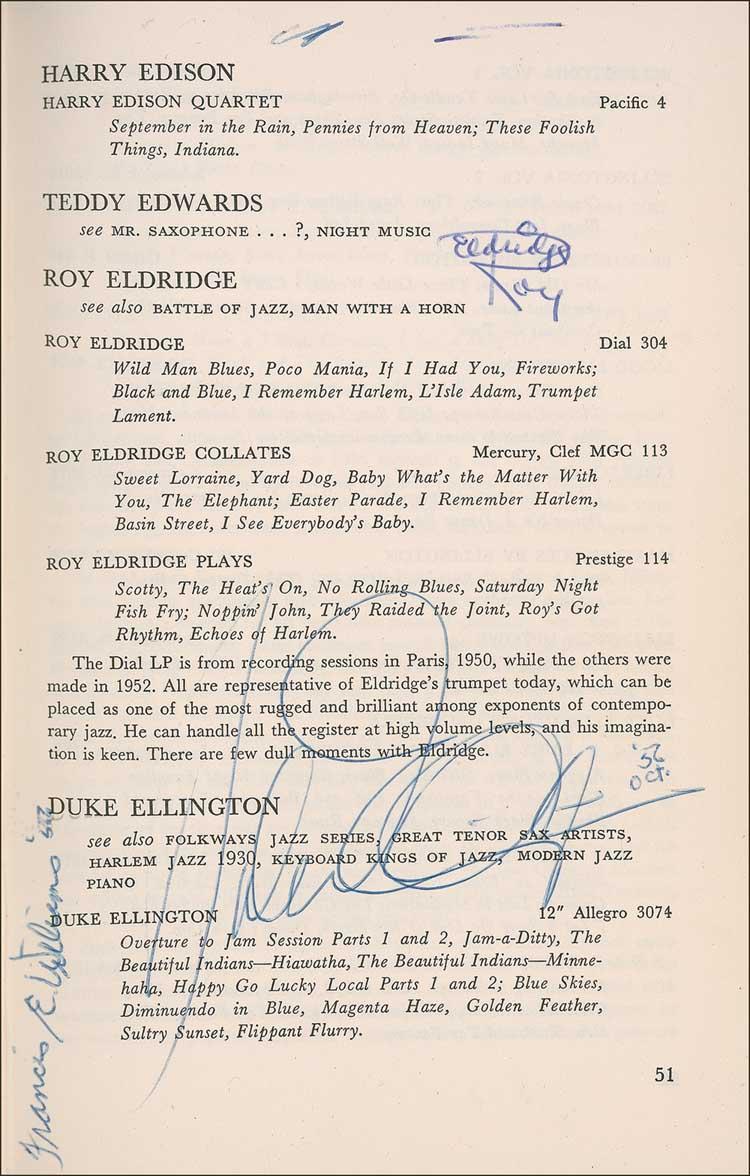 HARRY EDISON
HARRY EDISON QUARTET Pacific 4
September in the Rain, Pennies from Heaven; These Foolish
Things, Indiana.
TEDDY EDWARDS
see MR. SAXOPHONE . . . ?, NIGHT MUSIC
Eldridge
Roy
ROY ELDRIDGE
see also BATTLE OF JAZZ, MAN WITH A HORN
ROY ELDRIDGE Dial 304
Wild Man Blues, Poco Mania, If I Had You, Fireworks;
Black and Blue, I Remember Harlem, L'Isle Adam, Trumpet
Lament.
ROY ELDRIDGE COLLATES Mercury, Clef MGC 113
Sweet Lorraine, Yard Dog, Baby What's the Matter With
You, The Elephant; Easter Parade, I Remember Harlem,
Basin Street, I See Everybody's Baby.
ROY ELDRIDGE PLAYS Prestige 114
Scotty, The Heat's On, No Rolling Blues, Saturday Night
Fish Fry; Noppin' John, They Raided the Joint, Roy's Got
Rhythm, Echoes of Harlem.
The Dial LP is from recording sessions in Paris, 1950, while the others were
made in 1952. All are representative of Eldridge's trumpet today, which can be
placed as one of the most rugged and brilliant among exponents of contempo-
rary jazz. He can handle all the register at high volume levels, and his imagina-
tion is keen. There are few dull moments with Eldridge.
Oct.
DUKE ELLINGTON
see also FOLKWAYS JAZZ SERIES, GREAT TENOR SAX ARTISTS,
HARLEM JAZZ 1930, KEYBOARD KINGS OF JAZZ, MODERN JAZZ
PIANO
DUKE ELLINGTON 12" Allegro 3074
Overture to Jam Session Parts 1 and 2, Jam-a-Ditty, The
Beautiful Indians—Hiawatha, The Beautiful Indians—Minne-
haha, Happy Go Lucky Local Parts 1 and 2; Blue Skies,
Diminuendo in Blue, Magenta Haze, Golden Feather,
Sultry Sunset, Flippant Flurry.
Francis E. Williams
51